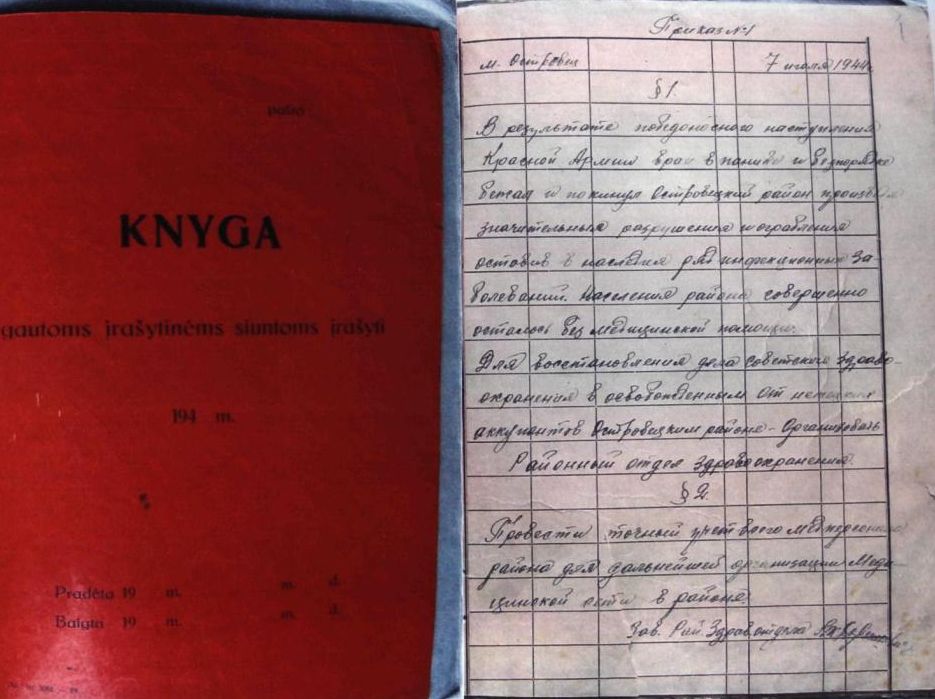 pašto
KNYGA
gautoms įrašytinėms siuntoms įrašyti
194 m.
Pradėta 19 m. m. d.
Baigta 19 m. m. d.
Приказ №1
1
м. Островец 7 июля 1944г.
§1.
В результате победоносного наступления
Красной Армии враг в панике и беспорядке
бежал и покинул Островецкий район произведя
значительных разрушения и ограбления
оставив в наследия ряд инфекционных За-
болеваний. Населения района совершенно
осталось без медицинской помощи.
Для восстановления дела Советского Здраво-
охранения в освобожденным от немецких
аккупантов Островецким районе - Организовать
Районный отдел Здравоохранения.
§2.
Провести точный учет всего медперсонала
района для дальнейшей организации Меди-
цинской сети в районе.
Зав. Рай. Здравотдела